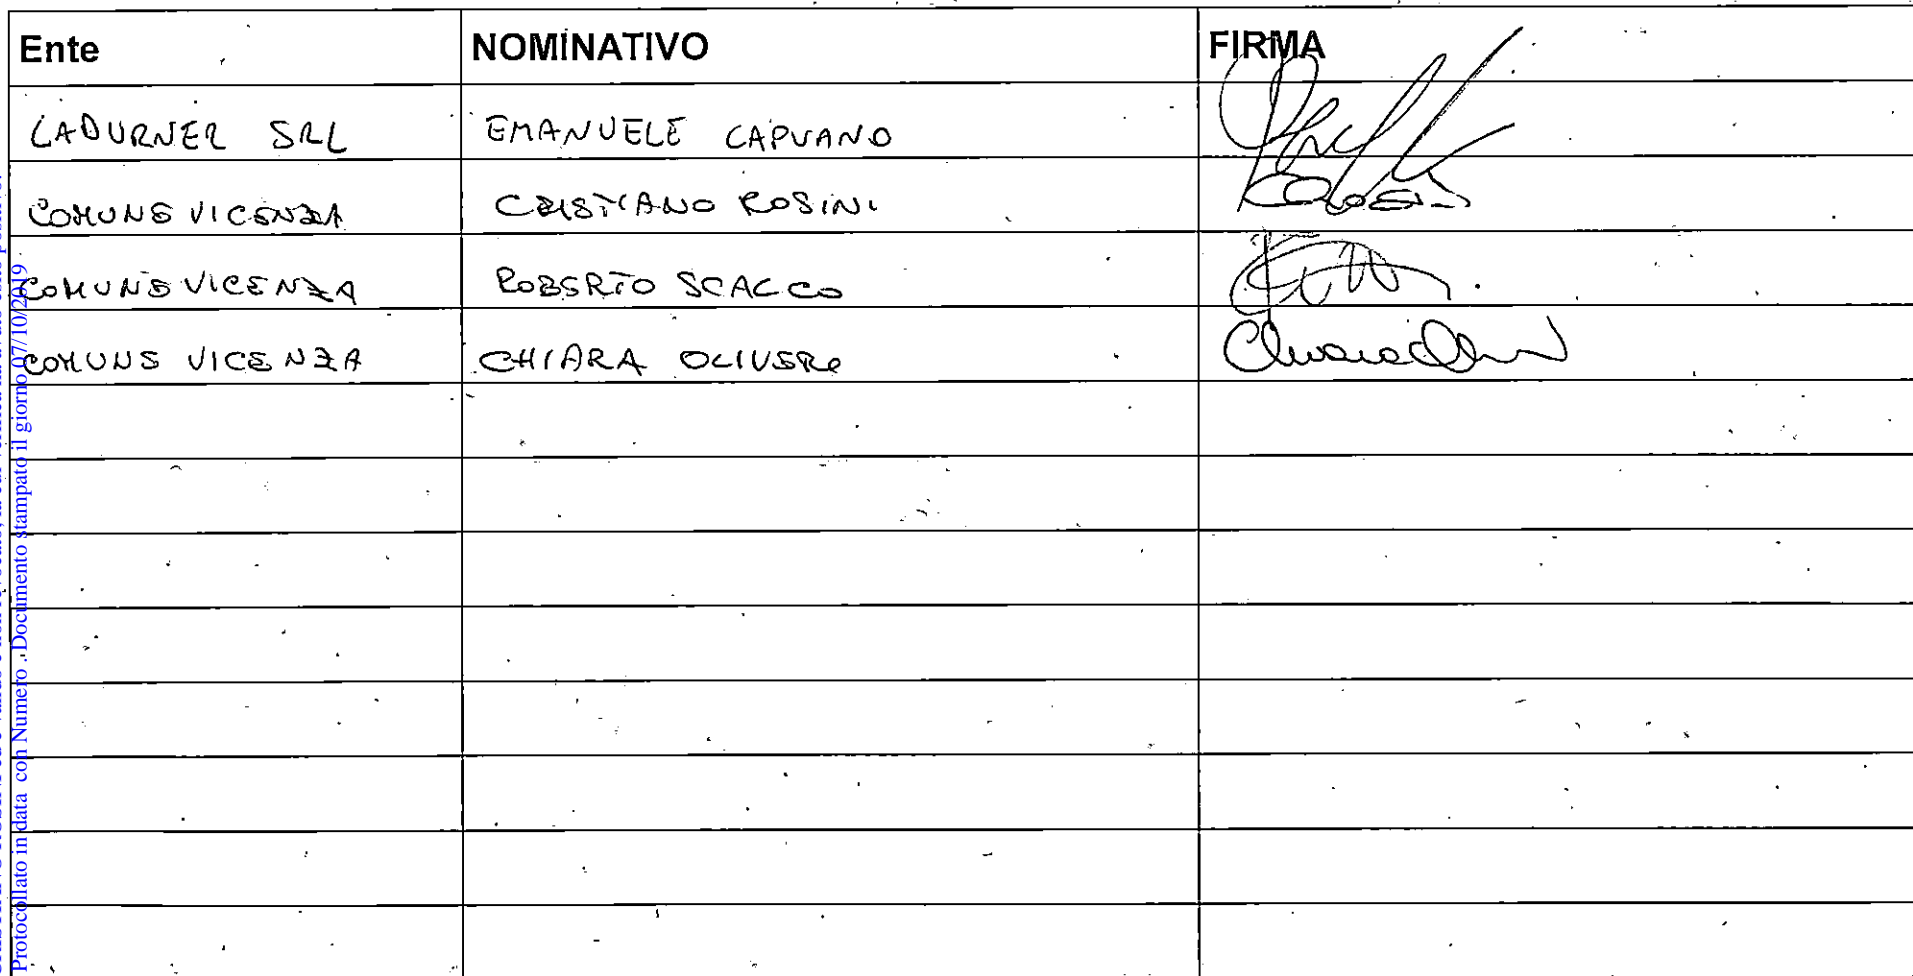 Ente NOMINATIVO FIRMA
LADURNER SRL EMANUELE CAPUANO
COMUNE VICENZA CRISTIANO ROSINI
COMUNE VICENZA ROBERTO SCALCO
COMUNE VICENZA CHIARA OLIVERO
Protocollato in data con Numero . Documento stampato il giorno 07/10/2019